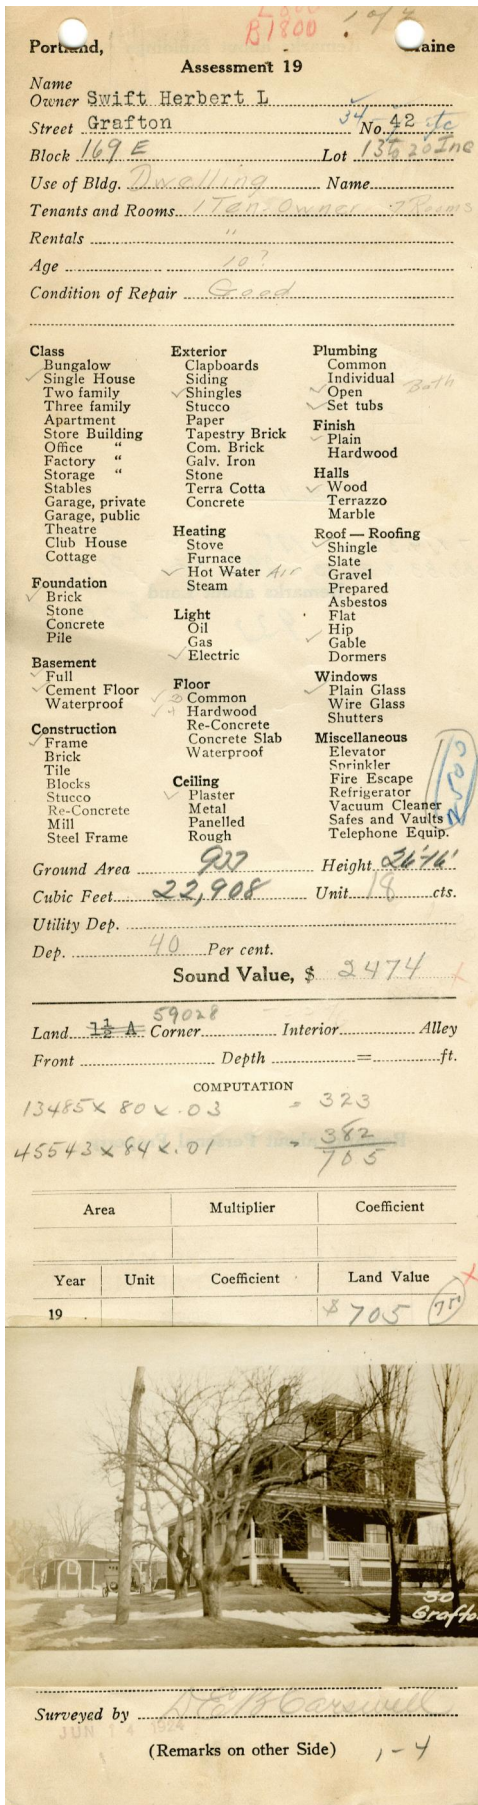 B1800
Portland, Maine
Assessment 19
Name
Owner Swift Herbert L
Street Grafton No. 42
Block 169 E Lot 13 to 20 Inc
Use of Bldg. Dwelling Name
Tenants and Rooms 1 Ten. Owner 7 Rooms
Rentals "
Age 10?
Condition of Repair Good
Class
Bungalow
✓ Single House
Two family
Three family
Apartment
Store Building
Office "
Factory "
Storage "
Stables
Garage, private
Garage, public
Theatre
Club House
Cottage
Foundation
✓ Brick
Stone
Concrete
Pile
Basement
✓ Full
✓ Cement Floor
Waterproof
Construction
✓ Frame
Brick
Tile
Blocks
Stucco
Re-Concrete
Mill
Steel Frame
Exterior
Clapboards
Siding
✓ Shingles
Stucco
Paper
Tapestry Brick
Com. Brick
Galv. Iron
Stone
Terra Cotta
Concrete
Heating
Stove
Furnace
✓ Hot Water Air
Steam
Light
Oil
Gas
✓ Electric
Floor
✓ 3 Common
✓ 4 Hardwood
Re-Concrete
Concrete Slab
Waterproof
Ceiling
✓ Plaster
Metal
Panelled
Rough
Plumbing
Common
Individual
✓ Open Bath
✓ Set tubs
Finish
✓ Plain
Hardwood
Halls
✓ Wood
Terrazzo
Marble
Roof — Roofing
✓ Shingle
Slate
Gravel
Prepared
Asbestos
Flat
✓ Hip
✓ Gable
Dormers
Windows
✓ Plain Glass
Wire Glass
Shutters
Miscellaneous
Elevator
Sprinkler
Fire Escape
Refrigerator
Vacuum Cleaner
Safes and Vaults
Telephone Equip.
2500
Ground Area Height
Cubic Feet 22,908 Unit 18 cts.
Utility Dep.
Dep. 40 Per cent.
Sound Value, $ 2474 x
59028
Land 1½ A Corner Interior Alley
Front Depth = ft.
COMPUTATION
13485 x 80 x .03 = 323
45543 x 84 x .01 = 382
705
Area Multiplier Coefficient
Year Unit Coefficient Land Value x
19 $705 750
50
Grafto
Surveyed by
JUN 14 1924
(Remarks on other Side) 1-4